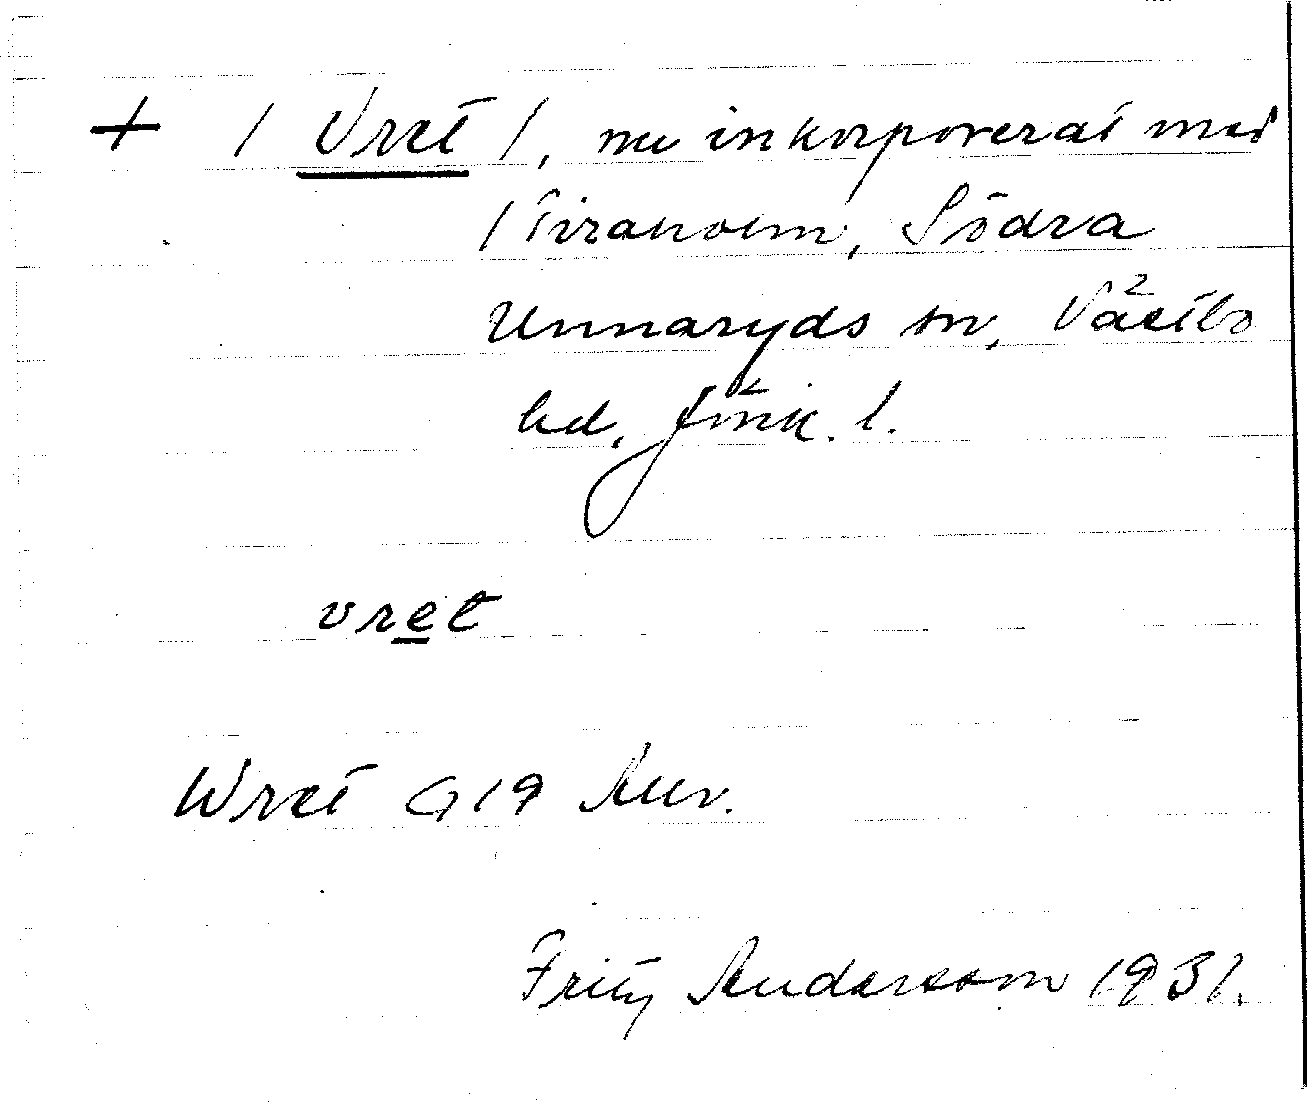 + / Vret /, nu inkorporerat med
/ Tiraholm, Södra
Unnaryds sn, Västbo
hd, Jönk. l.
vret
Wret G 19 Avr.
Fritz Andersson 1931.